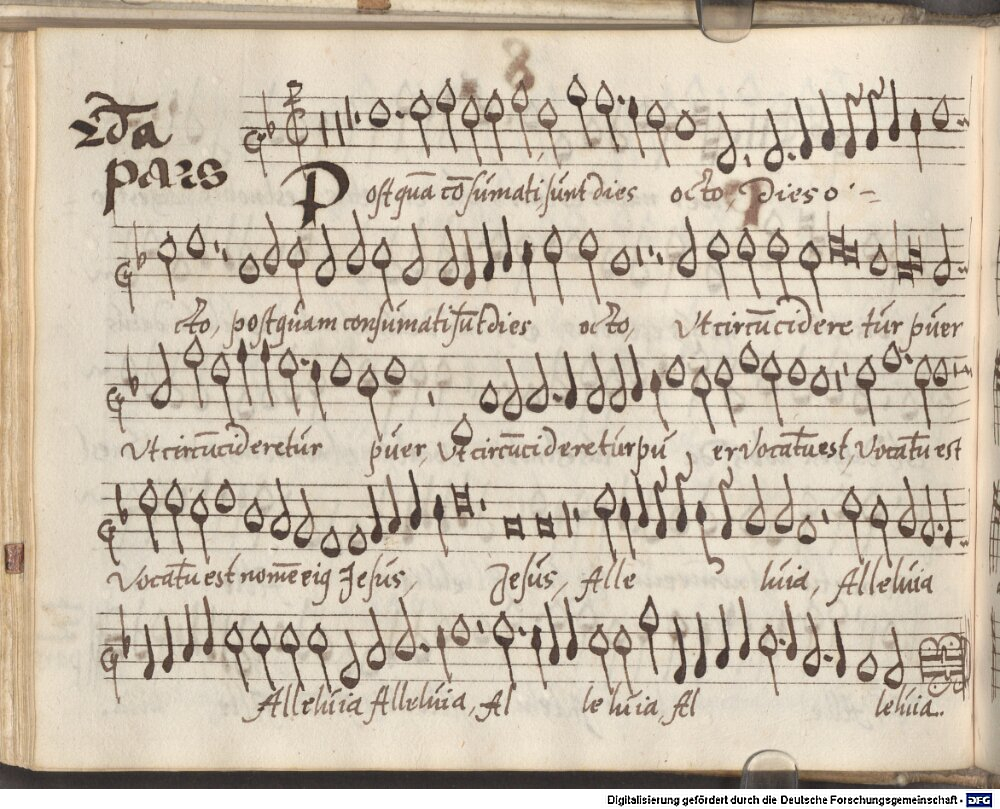 2da
pars
Postquā cōsumati sunt dies octo, Dies o=
cto, postquam consumati sūt dies octo, Vt circūcideretur puer
Vt circūcideretur puer, Vt circūcideretur pu er vocatū est, vocatū est
vocatū est nomē eiꝰ Jesus, Jesus, Alle luia, Alleluia
Alleluia Alleluia, Al leluia, Al leluia.
Digitalisierung gefördert durch die Deutsche Forschungsgemeinschaft - DFG